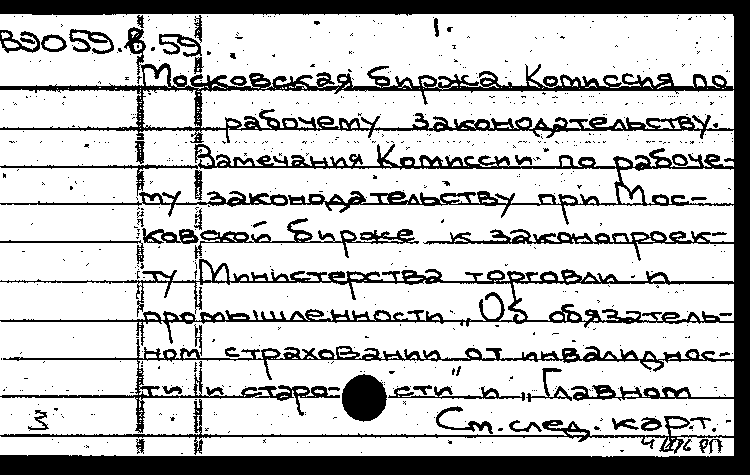 1.
ВЭО59.в.59.
Московская биржа. Комиссия по
рабочему законодательству.
Замечания Комиссии по рабоче-
му законодательству при Мос-
ковской бирже к законопроек-
ту Министерства торговли и
промышленности „Об обязатель-
ном страховании от инвалиднос-
ти и старо- сти" и „Главном
См. след. карт.